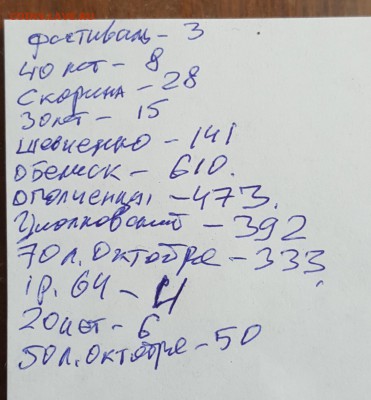 фестиваль - 3
40 лет - 8
Скорина - 28
30 лет - 15
шевченко - 141
обелиск - 610.
ополченцы - 473.
Циолковский - 392
70 л. Октября - 333
1р. 64 - 4
20 лет - 6
50 л. Октября - 50